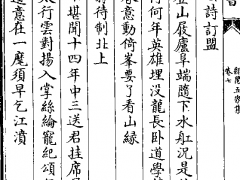 卷七
詩訂盟
山殷廬阜端隨下水舡況是
何年英雄埋沒龍長卧道學
春意動倚峯要了看山緣
待制北上
堪聞十四年中三送君挂席
行雲對揚入掌絲綸寵紀頌
意在一麾須早乞江濆